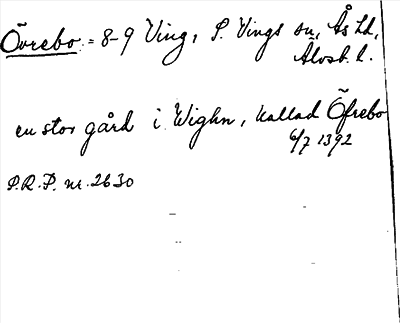 Övrebo = 8-9 Ving, S. Vings sn, Ås hd,
Älvsb. l.
en stor gård i Wighn, kallad Öfrebo
6/7 1392
P.R.P. nr. 2630